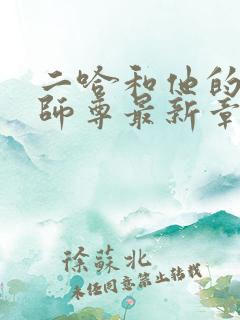 二哈和他的
師尊最新章
徐蘇北
未经同意禁止转载